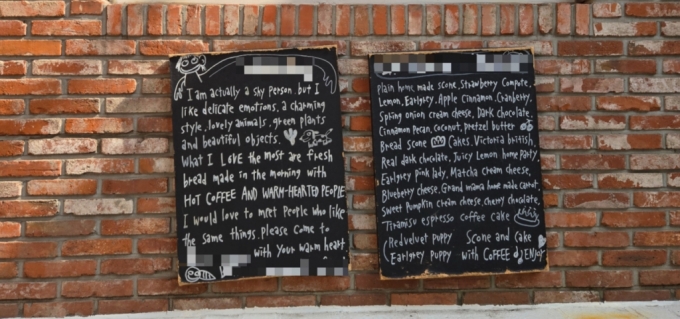 I am actually a shy person. but I
like delicate emotions. a charming
style. lovely animals. green plants
and beautiful objects.
What I Love the most are fresh
bread made in the morning with
HOT COFFEE AND WARM-HEARTED PEOPLE
I would love to meet People who like
the same things. Please Come to
with Your warm heart
plain home made scone, Strawberry Compote,
Lemon, Earlgrey, Apple Cinnamon, Cranberry,
Spring onion cream cheese, Dark chocolate,
Cinnamon Pecan, coconut, pretzel butter
Bread Scone Cakes. Victoria british,
Real dark chocolate, Juicy Lemon home Party,
Earlgrey Pink lady, Matcha cream cheese,
Blueberry cheese, Grand mama home made carrot,
Sweet Pumpkin cream cheese, cherry chocolate,
Tiramisu espresso coffee cake
Redvelvet puppy Scone and Cake
Earlgrey puppy with COFFEE ENJOY